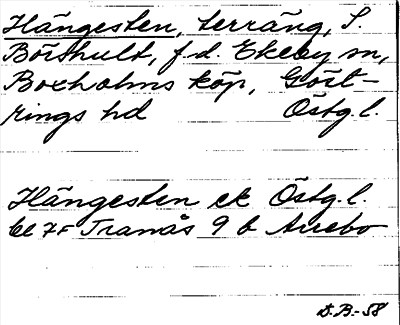 Hängesten, terräng, S.
Börshult, f.d. Ekeby sn,
Boxholms köp, Göst-
rings hd Östg. l.
Hängesten ek Östg. l.
bl 7F Tranås 9 b Aurebo
D.B.-58